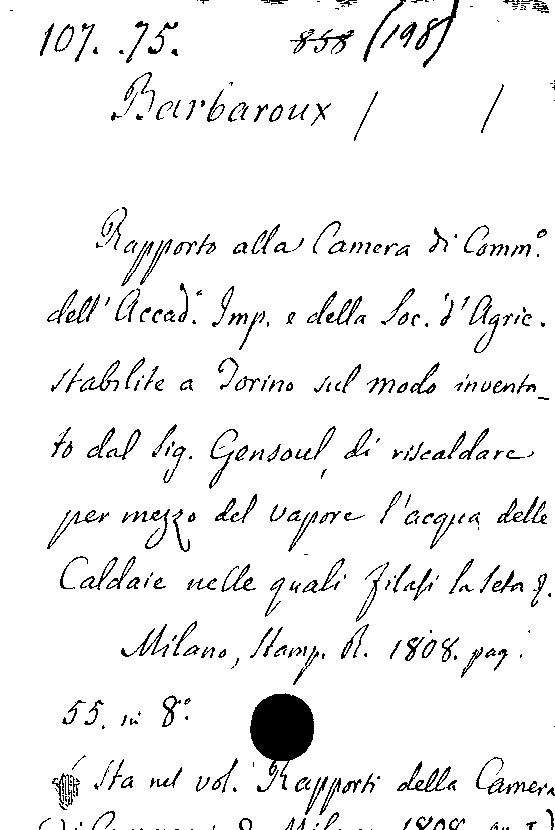 107. .75. 858 (198)
Barbaroux / /
Rapporto alla Camera di Comm.º
dell' Accad.ª Imp. e della Soc. d'Agric.
stabilite a Torino sul modo inventa-
to dal Sig. Gensoul, di riscaldare
per mezzo del vapore l'acqua delle
Caldaie nelle quali filasi la seta &.
Milano, Stamp. R. 1808. pag.
55. in 8.º
Sta nel vol. Rapporti della Camera
di Milano 1808.